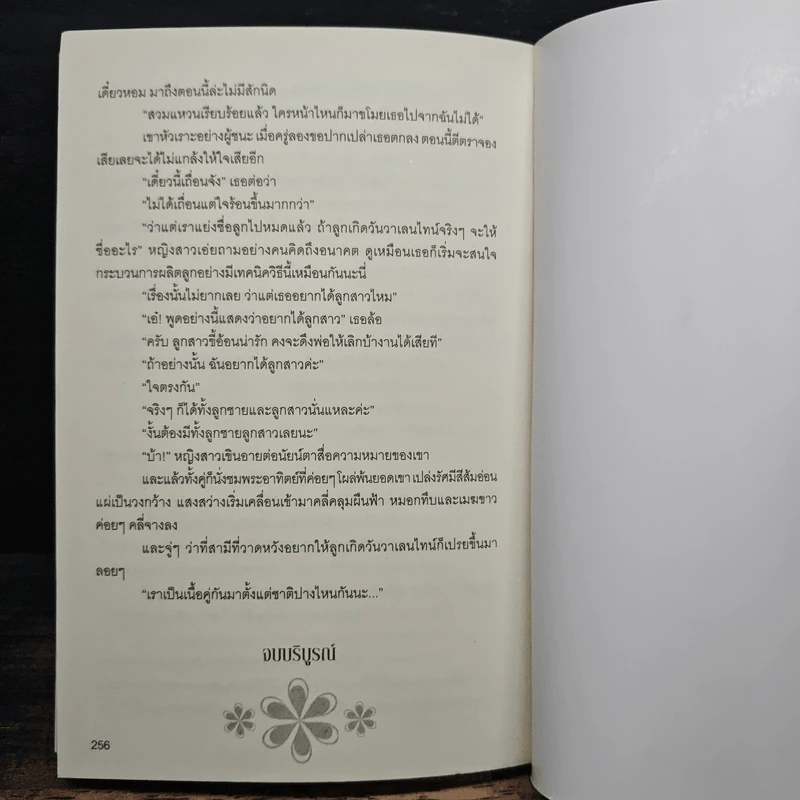 เดี๋ยวหอม มาถึงตอนนี้ล่ะไม่มีสักนิด
“สวมแหวนเรียบร้อยแล้ว ใครหน้าไหนก็มาขโมยเธอไปจากฉันไม่ได้”
เขาหัวเราะอย่างผู้ชนะ เมื่อครู่ลองขอปากเปล่าเธอตกลง ตอนนี้ตีตราจอง
เสียเลยจะได้ไม่แกล้งให้ใจเสียอีก
“เดี๋ยวนี้เถื่อนจัง” เธอต่อว่า
“ไม่ได้เถื่อนแต่ใจร้อนขึ้นมากกว่า”
“ว่าแต่เราแย่งชื่อลูกไปหมดแล้ว ถ้าลูกเกิดวันวาเลนไทน์จริงๆ จะให้
ชื่ออะไร” หญิงสาวเอ่ยถามอย่างคนคิดถึงอนาคต ดูเหมือนเธอก็เริ่มจะสนใจ
กระบวนการผลิตลูกอย่างมีเทคนิควิธีนี้เหมือนกันนะนี่
“เรื่องนั้นไม่ยากเลย ว่าแต่เธออยากได้ลูกสาวไหม”
“เอ๋! พูดอย่างนี้แสดงว่าอยากได้ลูกสาว” เธอล้อ
“ครับ ลูกสาวขี้อ้อนน่ารัก คงจะดึงพ่อให้เลิกบ้างานได้เสียที”
“ถ้าอย่างนั้น ฉันอยากได้ลูกสาวค่ะ”
“ใจตรงกัน”
“จริงๆ ก็ได้ทั้งลูกชายและลูกสาวนั่นแหละค่ะ”
“งั้นต้องมีทั้งลูกชายลูกสาวเลยนะ”
“บ้า!” หญิงสาวเขินอายต่อนัยน์ตาสื่อความหมายของเขา
และแล้วทั้งคู่ก็นั่งชมพระอาทิตย์ที่ค่อยๆ โผล่พ้นยอดเขา เปล่งรัศมีสีส้มอ่อน
แผ่เป็นวงกว้าง แสงสว่างเริ่มเคลื่อนเข้ามาคลี่คลุมผืนฟ้า หมอกทึบและเมฆขาว
ค่อยๆ คลี่จางลง
และจู่ๆ ว่าที่สามีที่วาดหวังอยากให้ลูกเกิดวันวาเลนไทน์ก็เปรยขึ้นมา
ลอยๆ
“เราเป็นเนื้อคู่กันมาตั้งแต่ชาติปางไหนกันนะ...”
จบบริบูรณ์
256